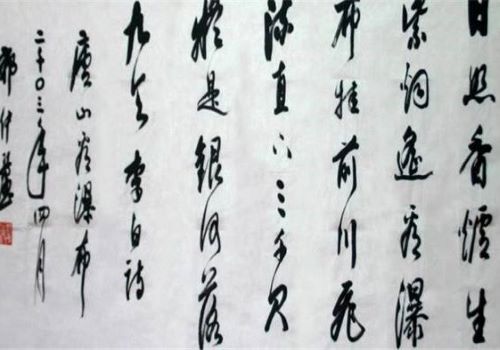 日照香炉生
紫烟遥看瀑
布挂前川飛
流直下三千尺
疑是銀河落
九天李白詩
廬山看瀑布
二十〇三年四月